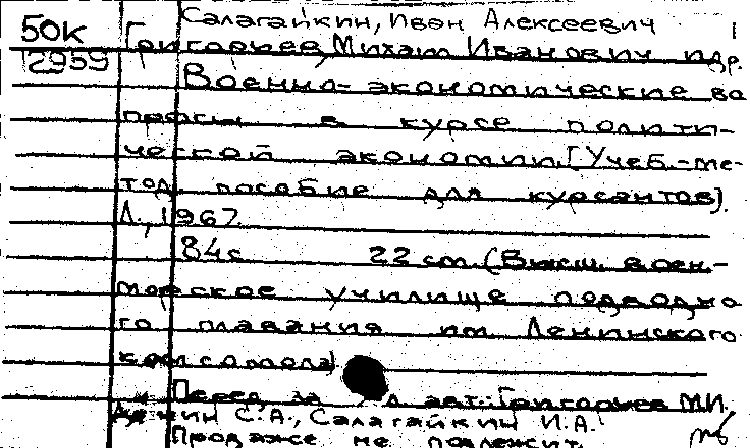 Салагайкин, Иван Алексеевич
50к
Григорьев, Михаил Иванович и др.
2959
Военно-экономические во
просы в курсе полити-
ческой экономии. [Учеб.-ме-
тод. пособие для курсантов].
Л., 1967.
84 с. 22 cm (Высш. воен.-
морское училище подводно
го плавания им. Ленинского
комсомола)
Перед за л. авт.: Григорьев М.И.
С.А., Салагайкин И.А.
Продаже не подлежит